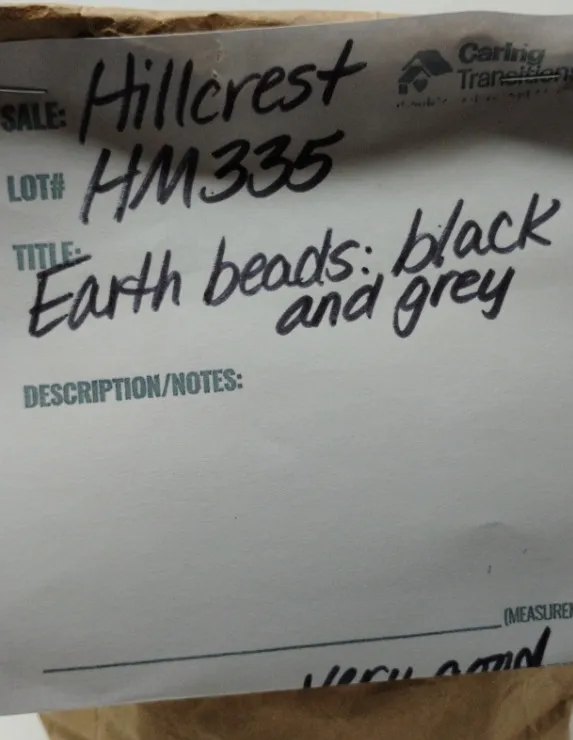 Caring
Transitions
SALE: Hillcrest
LOT# HM335
TITLE:
Earth beads: black
and grey
DESCRIPTION/NOTES:
(MEASUREM
very good